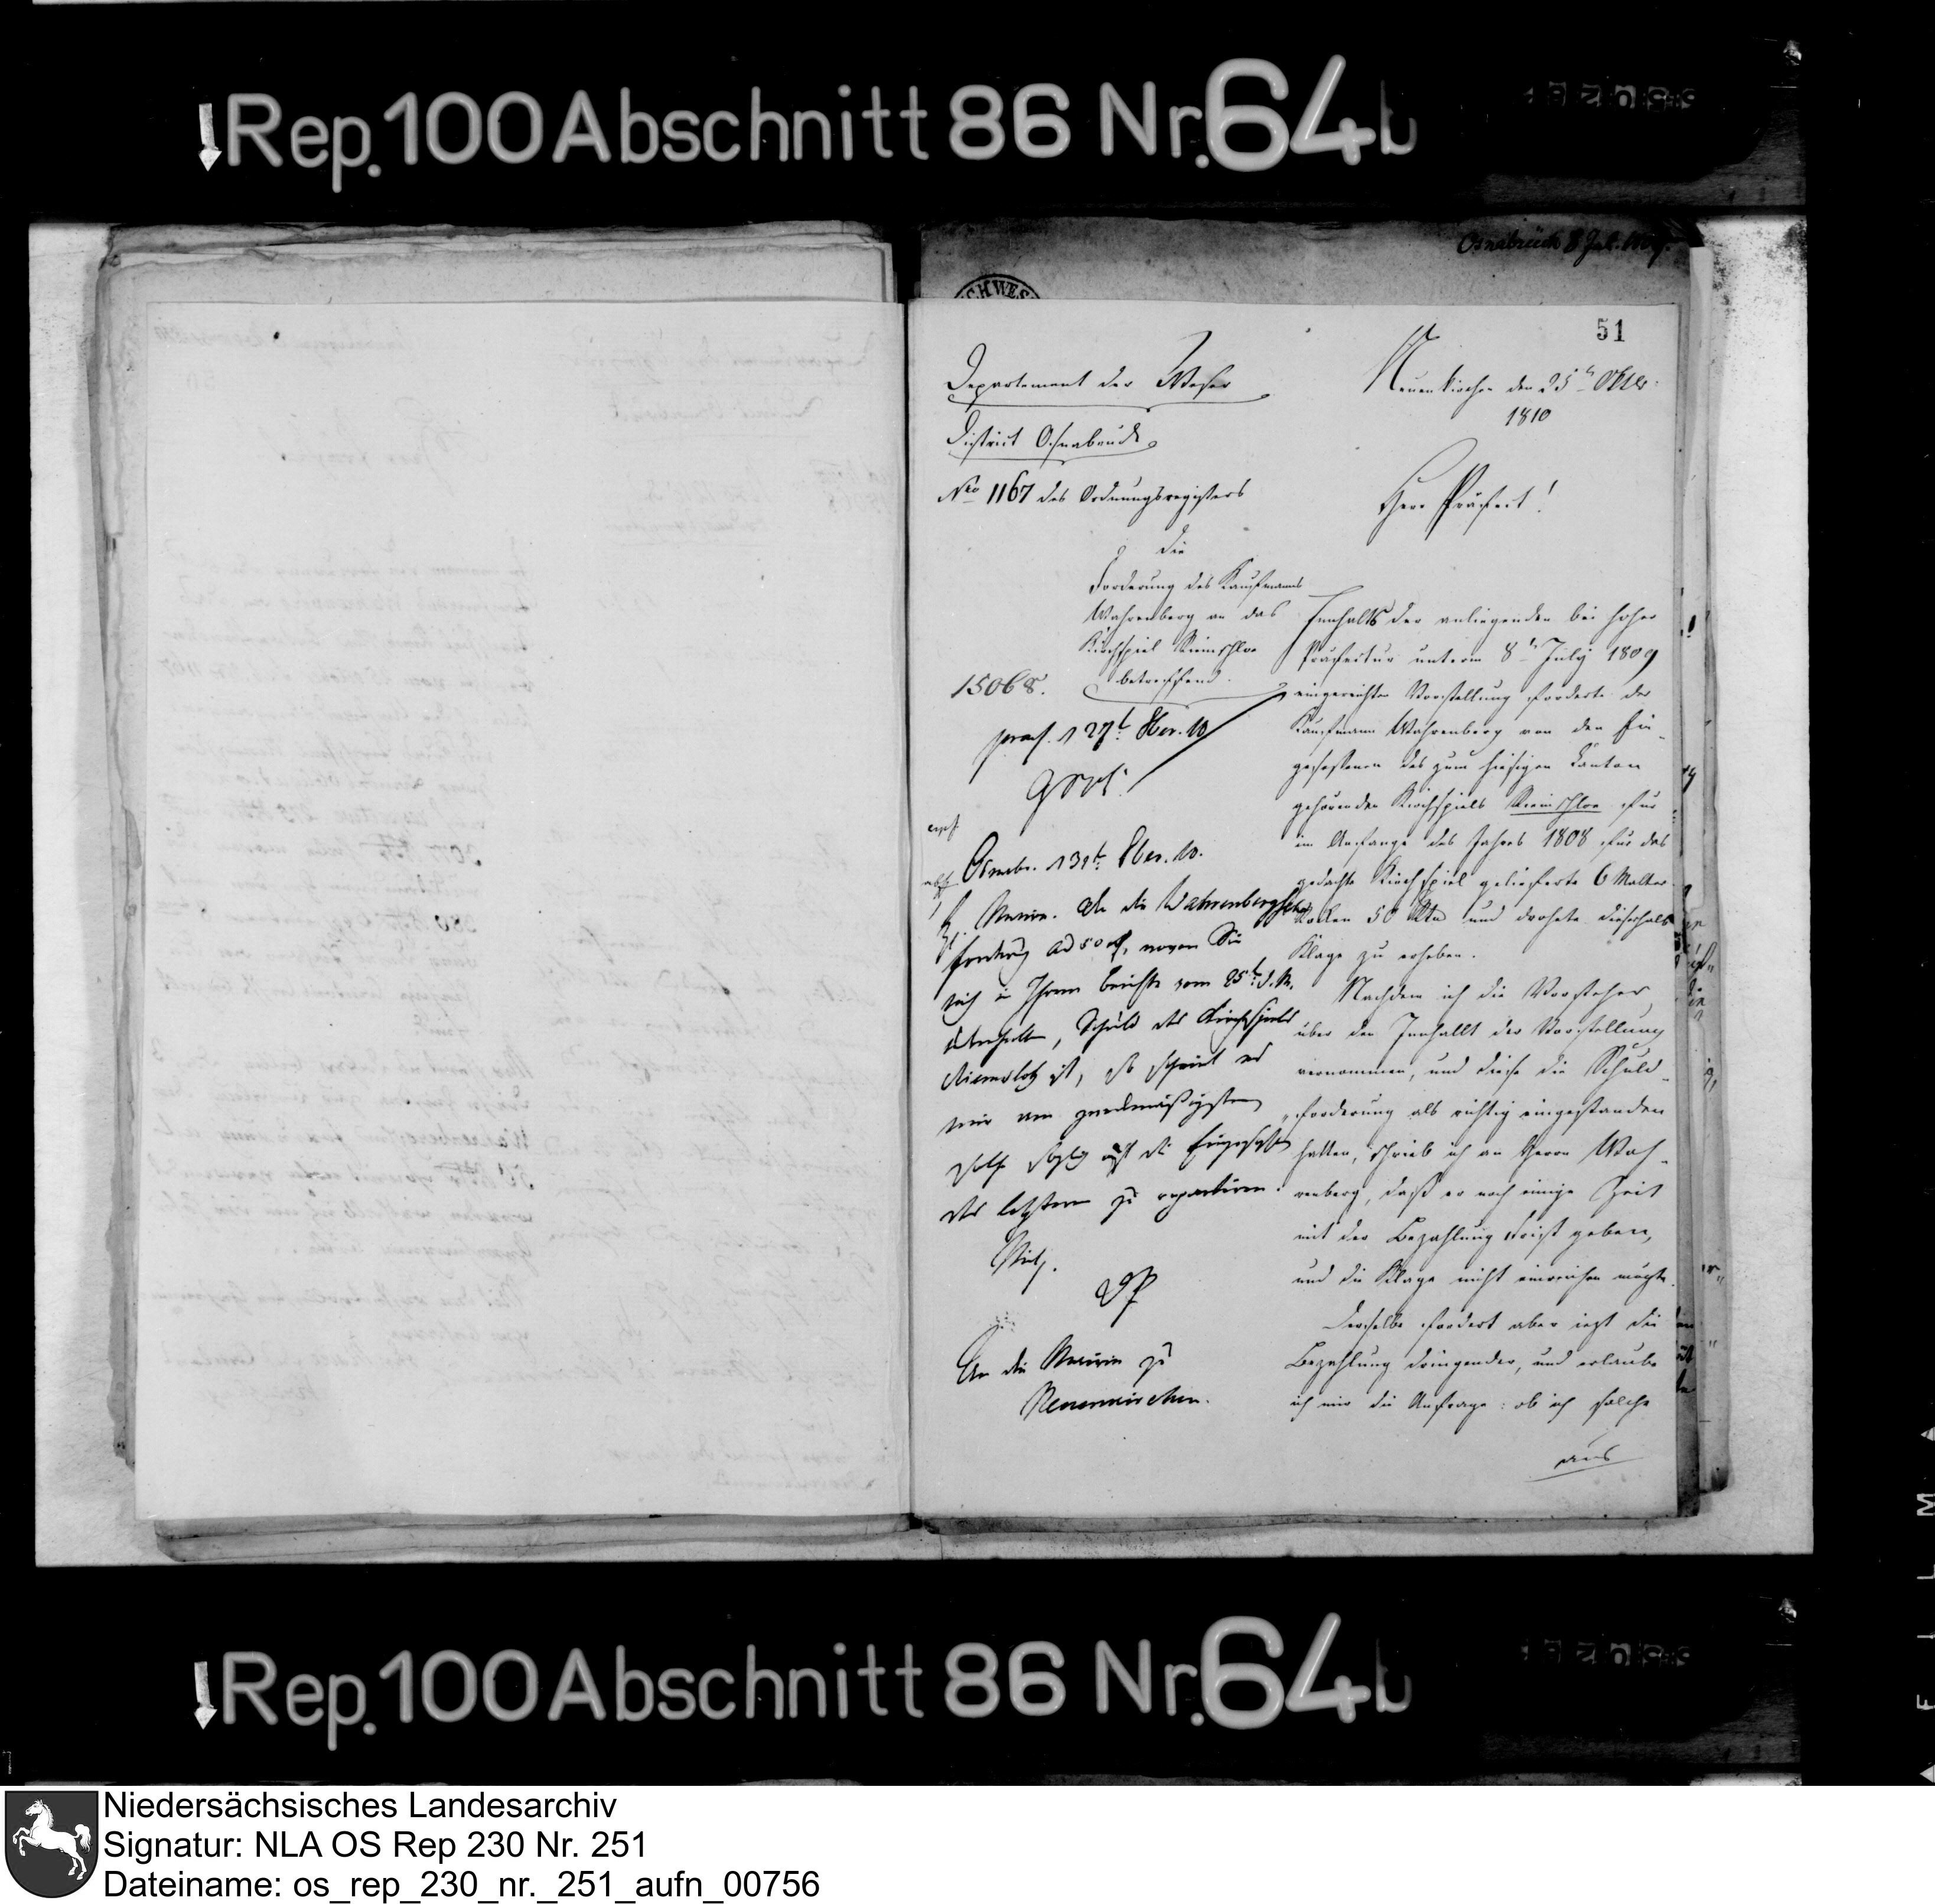 Rep. 100 Abschnitt 86 Nr. 64b
Osnabrück 8 Jul. 1809.
51
Departement der Weser
District Osnabrück
Nro 1167 des Ordnungsregisters
Neuenkirchen den 25t Obtbr.
1810
Herr Präfect!
Die
Forderung des Kaufmanns
Wahrenberg an das
Kirchspiel Riemsloe
betreffend.
15068.
praes. d 27t 8ber. 10
Innhalts der anliegenden bei hoher
Präfectur unterm 8t July 1809
eingereichten Vorstellung forderte der
Kaufmann Wahrenberg von den Ein-
gesessenen des zum hiesigen Canton
gehörenden Kirchspiels Riemsloe für
im Anfange des Jahrs 1808 für das
gedachte Kirchspiel gelieferte 6 Malter
Rocken 50 Rtlr und drohete dieserhalb
Klage zu erheben.
Nachdem ich die Vorsteher
über den Innhallt der Vorstellung
vernommen, und diese die Schuld-
forderung als richtig eingestanden
hatten, schrieb ich an Herrn Wah-
renberg, daß er noch einige Zeit
mit der Bezahlung Frist geben,
und die Klage nicht einreichen mögte.
Derselbe fordert aber iezt die
Bezahlung dringender, und erlaube
ich mir die Anfrage: ob ich solche
aus
Osnabr. d 31t 8ber. 10.
H. Maire. Da die Wahrenbergsche
Forderung ad 50 rf, wovon Sie
mich in Ihrem Berichte vom 25t d. M.
unterhalten, Schuld des Kirchspiels
Riemsloh ist, so scheint es
mir am zweckmäßigsten,
selbe auf die Eingesessenen
des letztern zu repartiren.
An die Mairie zu
Neuenkirchen.
Rep. 100 Abschnitt 86 Nr. 64b
Niedersächsisches Landesarchiv
Signatur: NLA OS Rep 230 Nr. 251
Dateiname: os_rep_230_nr._251_aufn_00756